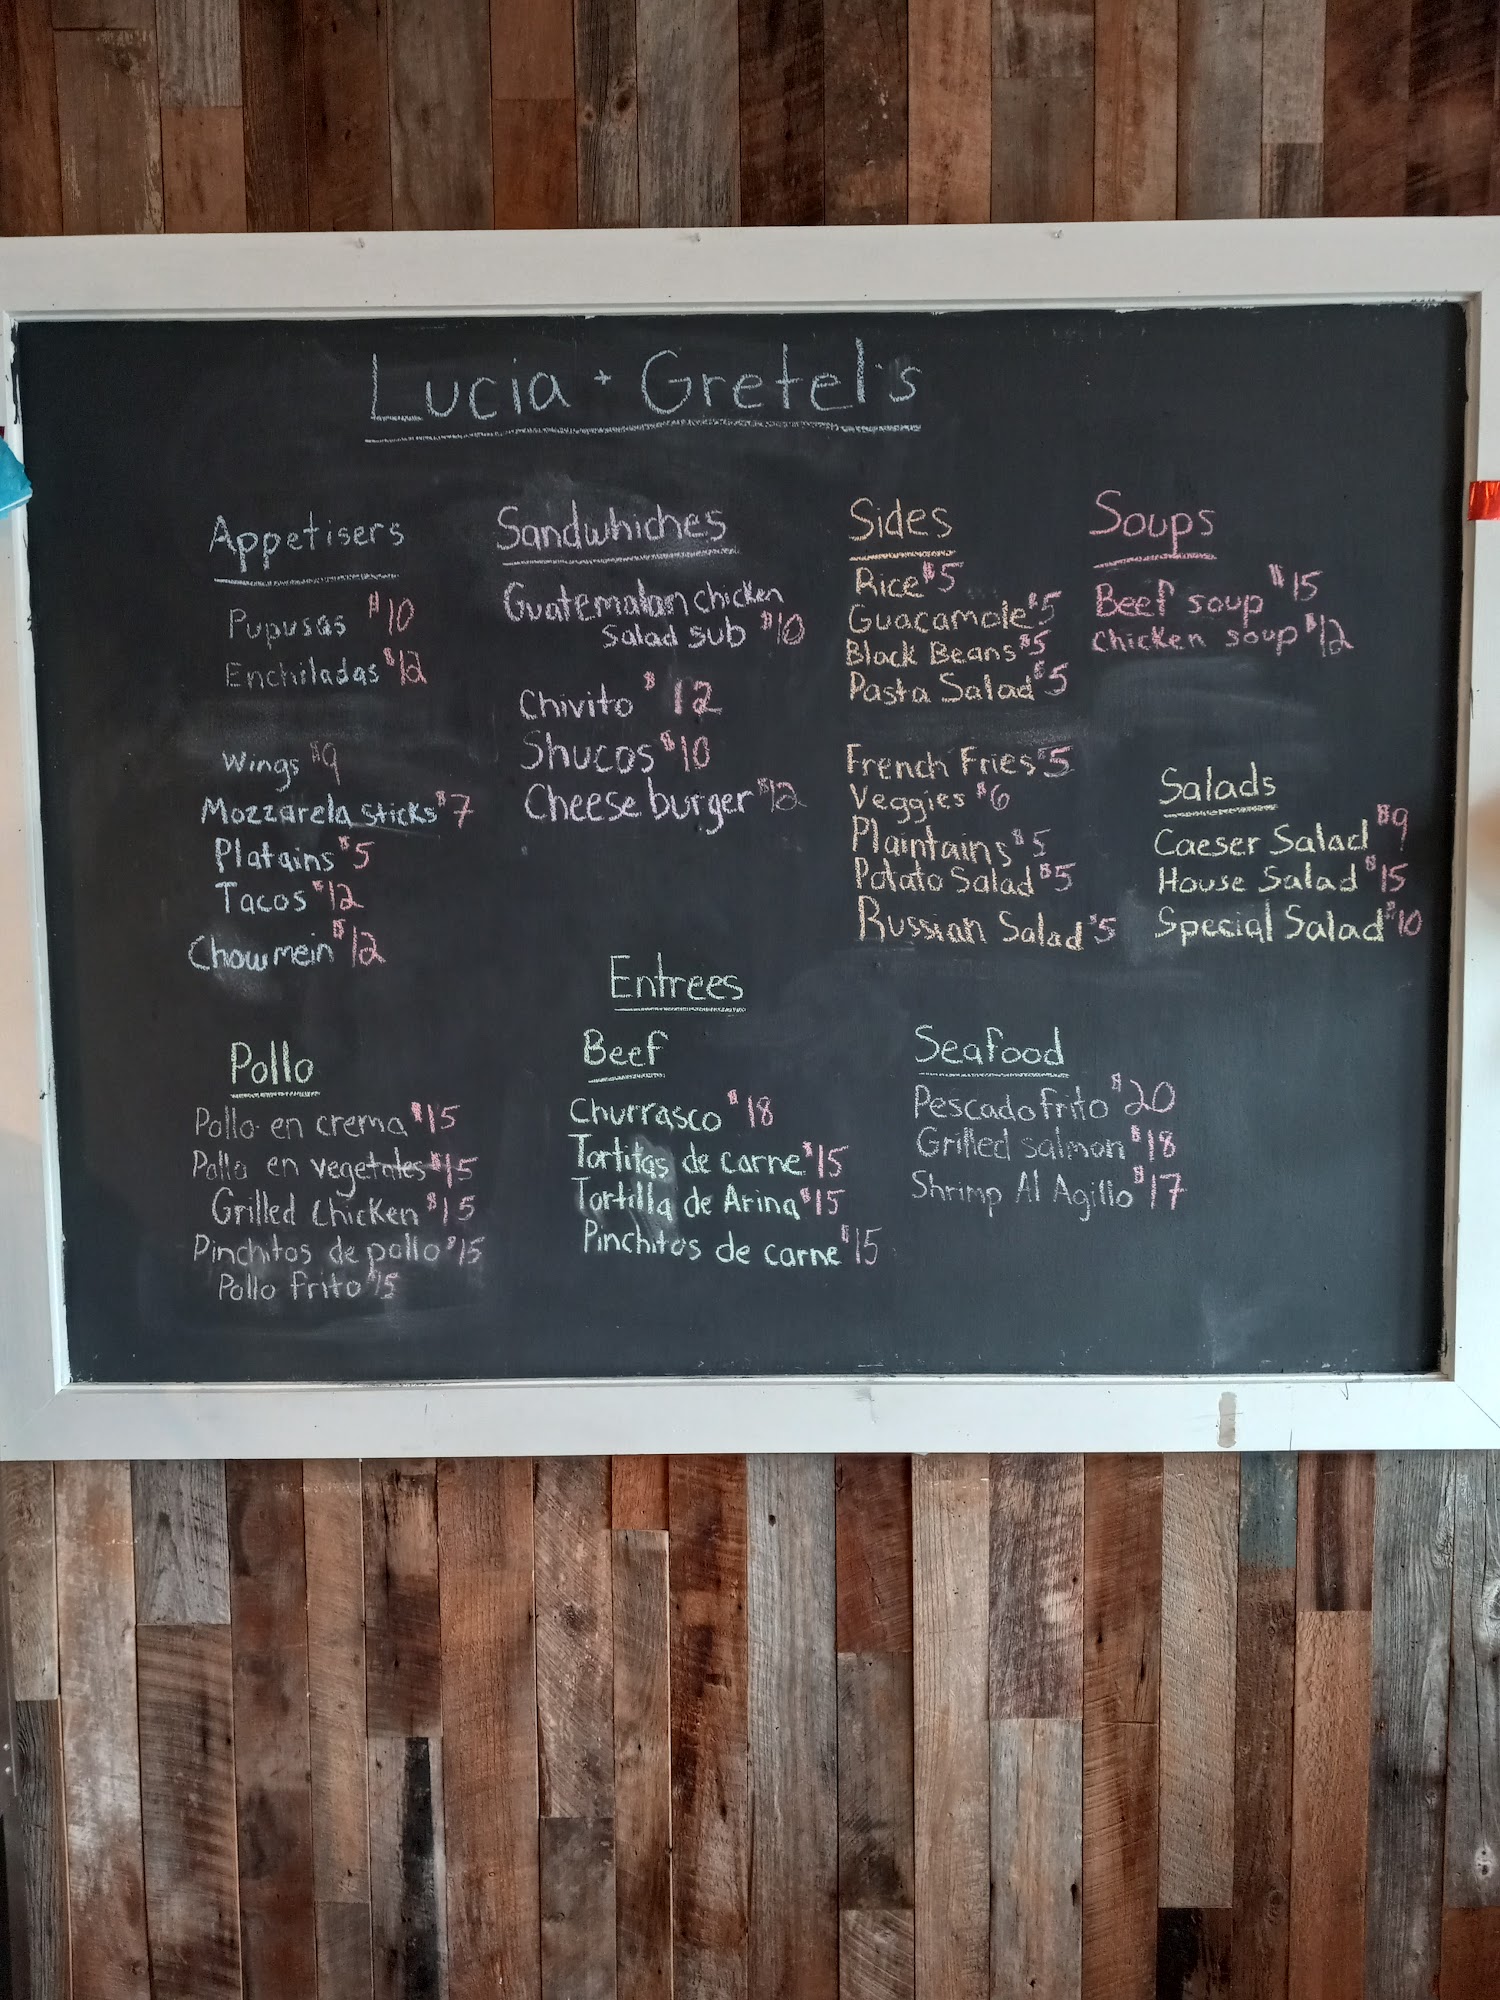 Lucia + Gretel's
Appetisers
Pupusas $10
Enchiladas $12
Wings $9
Mozzarela sticks $7
Platains $5
Tacos $12
Chowmein $12
Sandwhiches
Guatemalan chicken
salad sub $10
Chivito $12
Shucos $10
Cheese burger $12
Sides
Rice $5
Guacamole $5
Black Beans $5
Pasta Salad $5
French Fries $5
Veggies $6
Plaintains $5
Potato Salad $5
Russian Salad $5
Soups
Beef soup $15
chicken soup $12
Salads
Caeser Salad $9
House Salad $15
Special Salad $10
Entrees
Pollo
Pollo en crema $15
Pollo en vegetales $15
Grilled chicken $15
Pinchitos de pollo $15
Pollo frito $15
Beef
Churrasco $18
Tortitas de carne $15
Tortilla de Arina $15
Pinchitos de carne $15
Seafood
Pescado frito $20
Grilled salmon $18
Shrimp Al Agillo $17